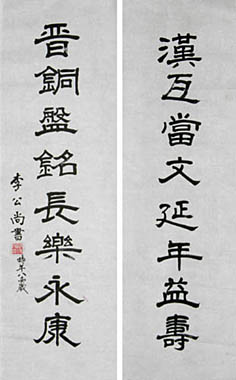 漢瓦當文延年益壽
晋銅盤銘長樂永康
李公尚書